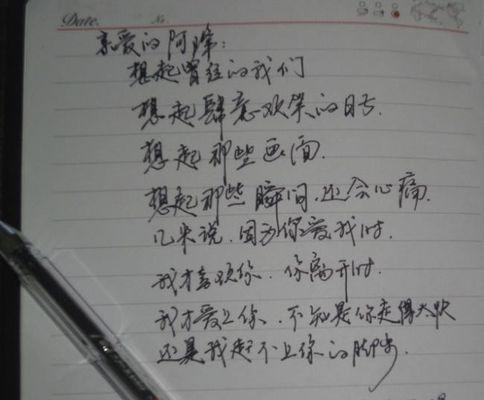 Date. No.
亲爱的阿降:
想起曾经的我们
想起肆意欢笑的日子.
想起那些画面.
想起那些瞬间,还会心痛.
几米说,因为你爱我时.
我才喜欢你.你离开时.
我才爱上你.不知是你走得太快
还是我赶不上你的脚步.